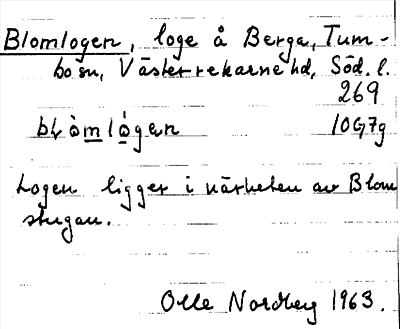 Blomlogen, loge å Berga, Tum-
bo sn, Västerrekarne hd, Söd. l.
269
blòmlågen 10G7g
Logen ligger i närheten av Blom
stugan.
Olle Nordberg 1963.